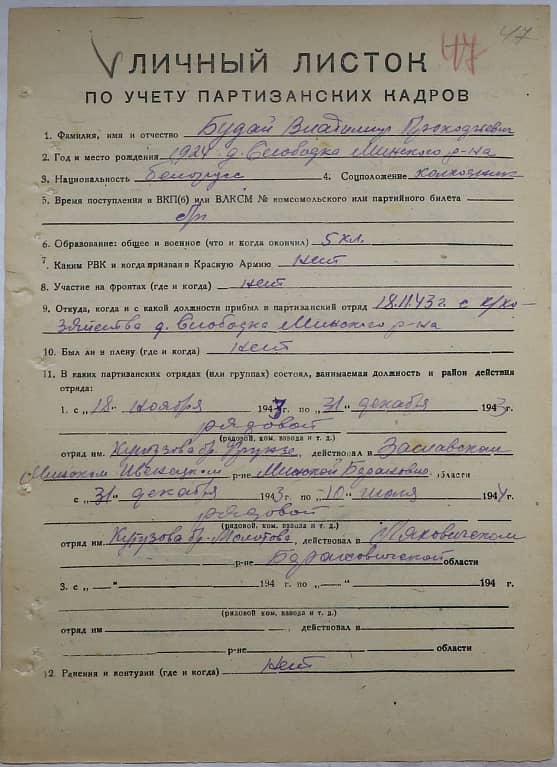 47
47
V ЛИЧНЫЙ ЛИСТОК
ПО УЧЕТУ ПАРТИЗАНСКИХ КАДРОВ
1. Фамилия, имя и отчество Будай Владимир
2. Год и место рождения 1924 д. Слободка Минского р-на
3. Национальность белорусс 4. Соцположение колхозник
5. Время поступления в ВКП(б) или ВЛКСМ № комсомольского или партийного билета
б/п
6. Образование: общее и военное (что и когда окончил) 5 кл.
7. Каким РВК и когда призван в Красную Армию нет
8. Участие на фронтах (где и когда) нет
9. Откуда, когда и с какой должности прибыл в партизанский отряд 18.11.43 г. с
зяйства д. Слободка Минского р-на
10. Был ли в плену (где и когда) нет
11. В каких партизанских отрядах (или группах) состоял, занимаемая должность и район действия
отряда:
1. с „18“ ноября 1943 г. по „31“ декабря 1943 г.
рядовой
(рядовой, ком. взвода и т. д.)
отряд им. Кутузова бр. Фрунзе, действовал в Заславском
Минском Ивенецком р-не Минской Баранович. области
с „31“ декабря 1943 г. по „10“ июля 1944 г.
рядовой
(рядовой, ком. взвода и т. д.)
отряд им Кутузова бр. Молотова, действовал в Ляховичском
р-не Барановичской области
3. с „—“ 194 г. по „—“ 194 г.
(рядовой ком. взвода и т. д.)
отряд им , действовал в
р-не области
12. Ранения и контузии (где и когда) нет